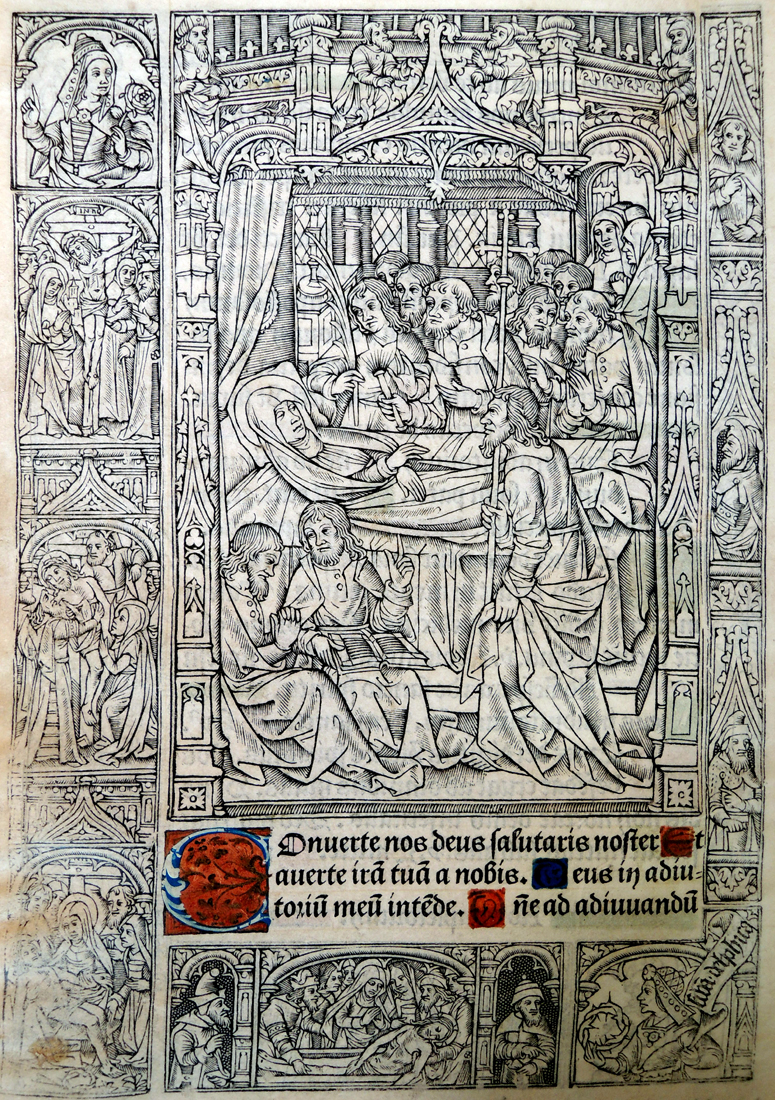 INRI
Conuerte nos deus ſalutaris noſter Et
auerte irã tuã a nobis. Deus in adiu-
toriũ meũ intẽde. Dñe ad adiuuandũ